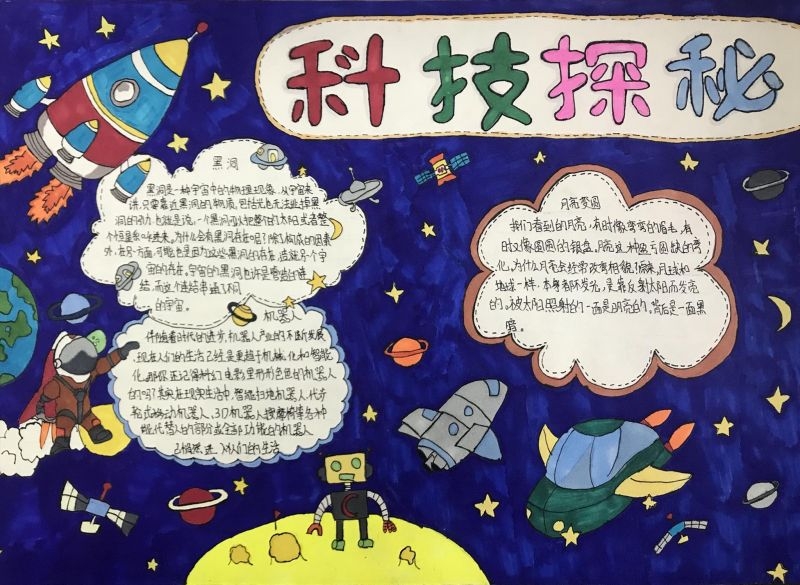 科技探秘
黑洞
黑洞是一种宇宙中的物理现象,从宇宙来
讲,只要靠近黑洞的物质,包括光也无法逃掉黑
洞的引力,也就是说,一个黑洞可以把整个的太阳或者整
个恒星
为什么会有黑洞存在呢?除了构成的因素
外,在另一方面,可能也是因为这些黑洞的存在,造就另个宇
宙的存在。宇宙的黑洞也许是管道的连
结,而这个连结串通了不同
的宇宙。
机器人
伴随着时代的进步,机器人产业的不断发展
,现在人们的生活已经是更趋于机械化和智能
化。那你还记得科幻电影里形形色色的机器人
的吗?其实在现实生活中,智能扫地机器人、代步
机器人、3D机器人、按摩椅等各种
能代替人的部分或全部功能的机器人
已悄然进入人们的生活
月亮变圆
我们看到的月亮,有时像弯弯的眉毛,有
时又像圆圆的银盘。月亮这种盈亏圆缺的变
化,为什么月亮会经常改变相貌?原来,月球和
地球一样,本身都不发光,是靠反射太阳而发亮
的。被太阳照射的一面是明亮的,背后是一面黑